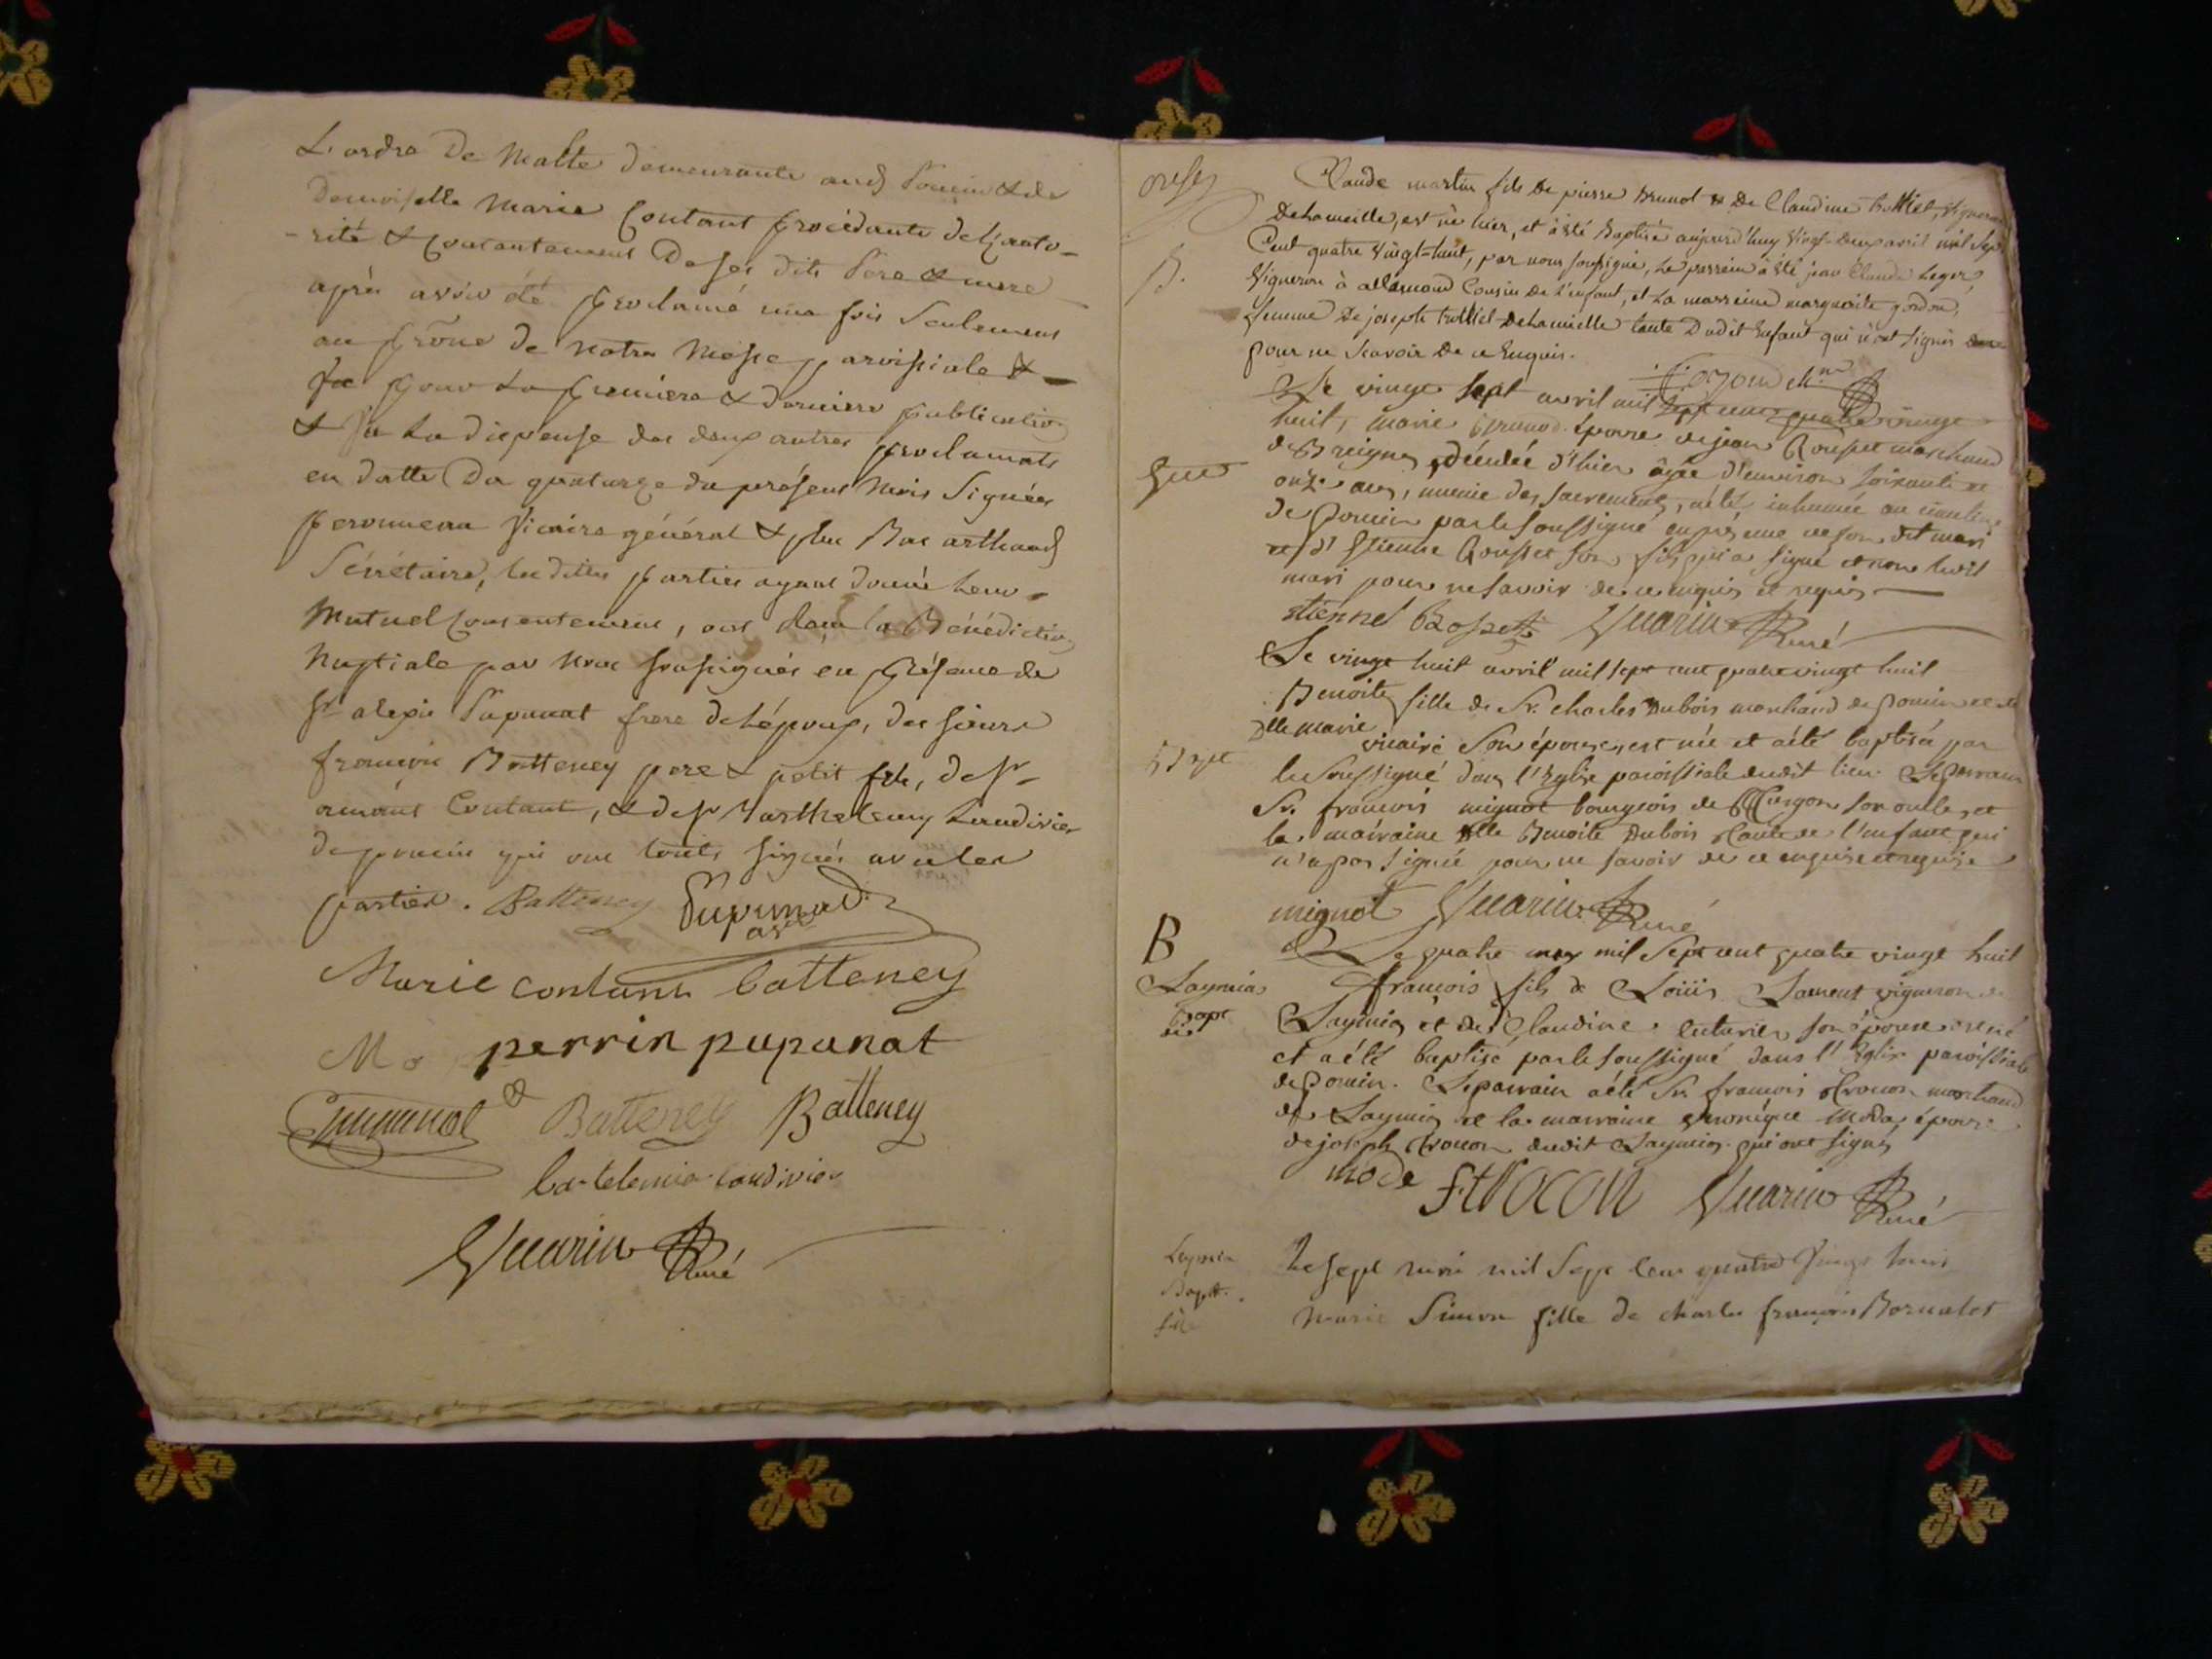 L'ordre De Malte demeurante aud Poncin & de
Demoiselle Marie Contant procédante de l'auto-
-rité & Consentement De ses dits Pere & mere
après avoir été proclamé une fois Seulement
au prône de notre Messe paroissiale &
pour La premiere & derniere publication
& Vu La dispense des deux autres proclamats
en datte Du quatorze du présent Mois Signée
Vicaire général & plus Bas
Sécrétaire, les dittes parties ayant donné Leur
Mutuel Consentement, ont la Bénédiction
Nuptiale par Nous soussigné en Présence de
Sr alexis Pupunat frere de L'époux, des sieurs
françois Batteney pere & petit fils, de Sr
Contant, & de Sr Barthelemy Landivier
de poncin qui ont touts signés avec les
parties. Batteney Pupunat
Marie contant batteney
M perrin pupunat
Batteney Batteney
bartelemie landivier
Vuarin Curé
B.
Claude martin fils De pierre Brunot & De Claudine trolliet, Vigneron
Dehameille, est né hier, et à été Baptisé aujourd'huy Vingt-deux avril mil Sept
Cent quatre Vingt-huit, par nous soussigné, Le parrein à été jean Claude Leger,
Vigneron à allemond Cousin De L'enfant, et La marreine marguerite gordon,
femme De joseph trolliet Dehameille tante Dudit Enfant qui n'ont signés
pour ne Scavoir De ce Enquis.
Le vingt sept avril mil sept cent quatre vingt
huit, marie épouse de jean Rousset marchand
de Breignes, décédée d'hier âgée d'environ soixante et
onze ans, munie des sacrements, a été inhumée au cimetiere
de Poncin par le soussigné en présence de son dit mari
et d'Etienne Rousset son fils qui a signé et non ledit
mari pour ne savoir de ce enquis et requis
etienne Rosset Vuarin Curé
Le vingt huit avril mil sept cent quatre vingt huit
Benoite fille de Sr. charles Dubois marchand de Poncin et de
Dlle marie vicaire Son épouse, est née et a été baptisée par
Bapt
le soussigné dans l'Eglise paroissiale dudit lieu. Le parrain
Sr. françois mignot bourgeois de son oncle, et
la marraine Dlle Benoite Dubois tante de l'enfant qui
n'a pas signée pour ne savoir de ce enquise et requise
mignot Vuarin Curé
B
Le quatre may mil Sept cent quatre vingt huit
Leymia
françois fils de Loüis Laurent vigneron de
Bapt
Leymia et de Claudine son épouse est né
et a été baptisé par le soussigné dans l'Eglise paroissiale
de Poncin. Le parrain a été Sr. françois trocon marchand
de Leymia et la marraine veronique Moda épouse
de joseph trocon dudit Leymia qui ont signé
mode F trocon Vuarin Curé
Leymia
Le sept mai mil Sept Cent quatre Vingt huit
Bapt.
Marie Simon fille de charles françois Bornalet
fille